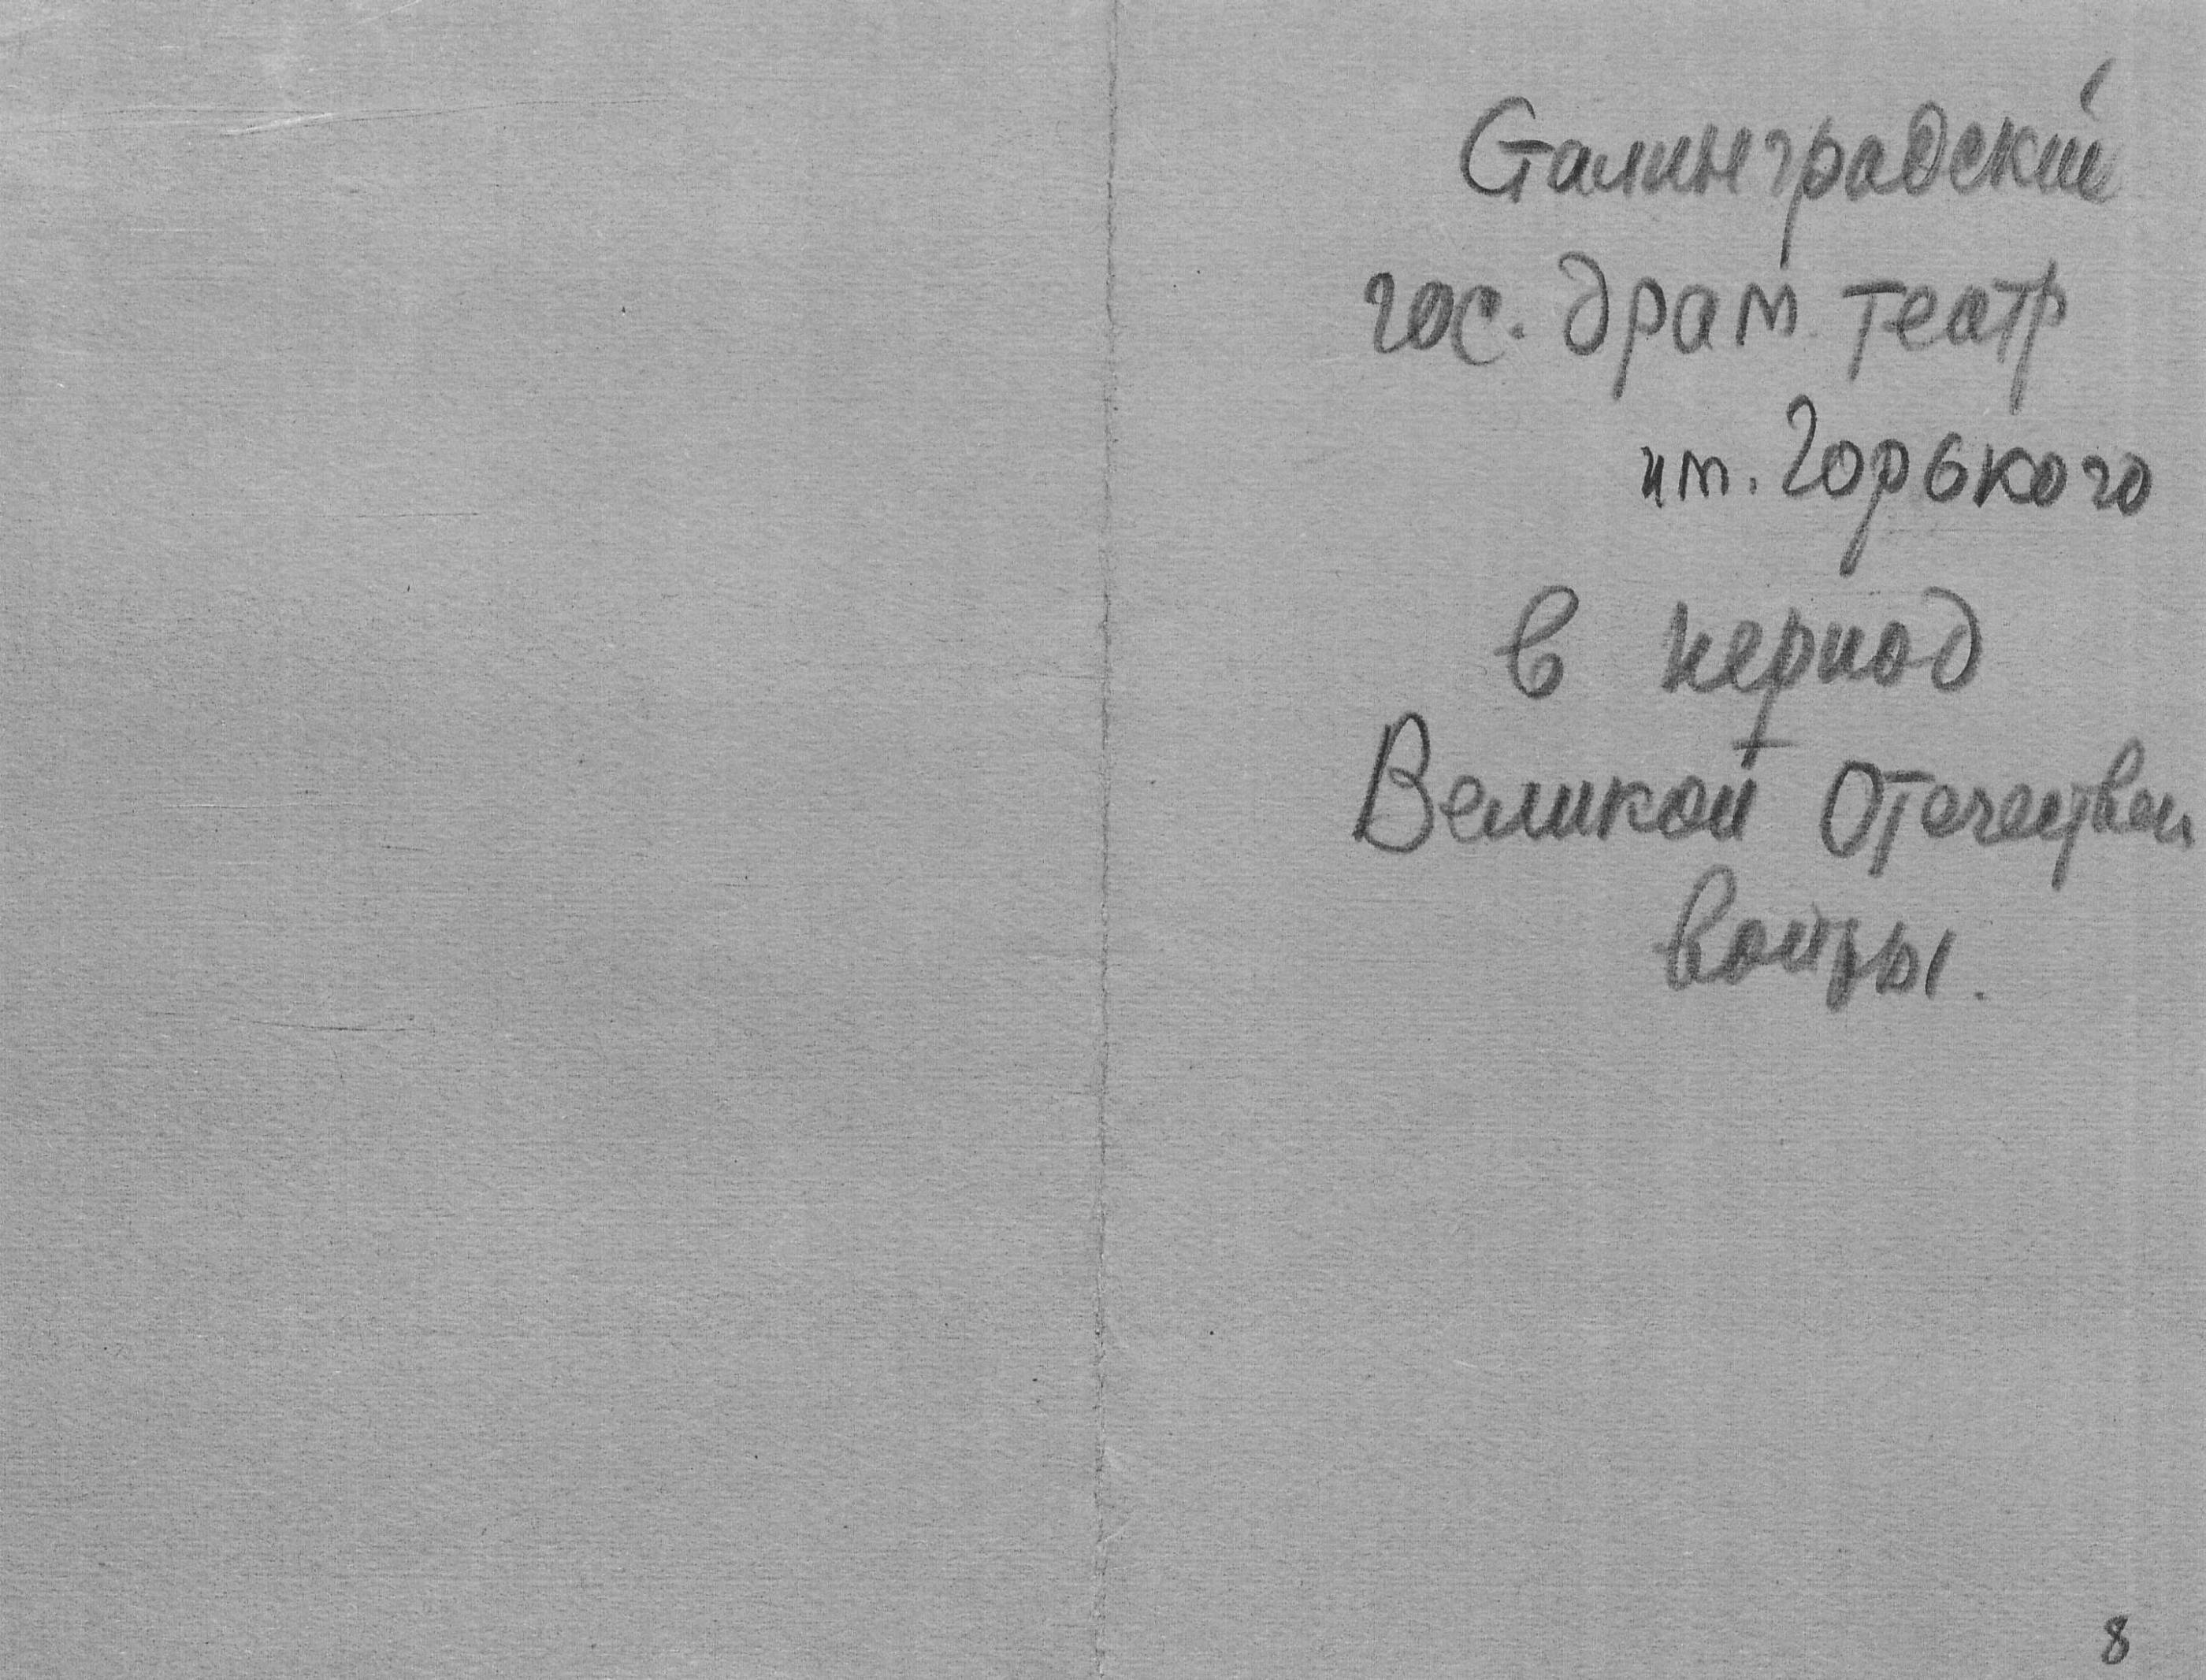 Сталинградский
гос. драм театр
им. Горького
в период
Великой Отечествен
войны.
8